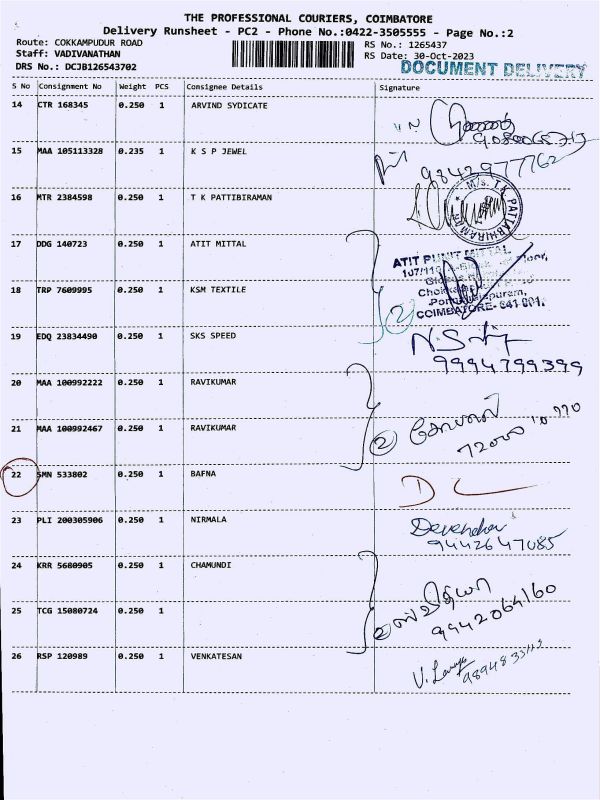 THE PROFESSIONAL COURIERS, COIMBATORE
Delivery Runsheet - PC2 - Phone No.:0422-3505555 - Page No.:2
Route: COKKAMPUDUR ROAD
RS No.: 1265437
Staff: VADIVANATHAN
RS Date: 30-Oct-2023
DRS No.: DCJB126543702
DOCUMENT DELIVERY
S No Consignment No Weight PCS Consignee Details Signature
14 CTR 168345 0.250 1 ARVIND SYDICATE
15 MAA 105113328 0.235 1 K S P JEWEL
9842977762
16 MTR 2384598 0.250 1 T K PATTIBIRAMAN
M/S. T.K. PATTABHIRAMAN
17 DDG 140723 0.250 1 ATIT MITTAL
ATIT PUNIT MITTAL
18 TRP 7609995 0.250 1 KSM TEXTILE
COIMBATORE- 641 001.
2
19 EDQ 23834490 0.250 1 SKS SPEED
9994799399
20 MAA 100992222 0.250 1 RAVIKUMAR
21 MAA 100992467 0.250 1 RAVIKUMAR
2
22 SMN 533802 0.250 1 BAFNA
D C
23 PLI 200305906 0.250 1 NIRMALA
Devendran
9442647085
24 KRR 5680905 0.250 1 CHAMUNDI
25 TCG 15080724 0.250 1
2
9942064160
26 RSP 120989 0.250 1 VENKATESAN